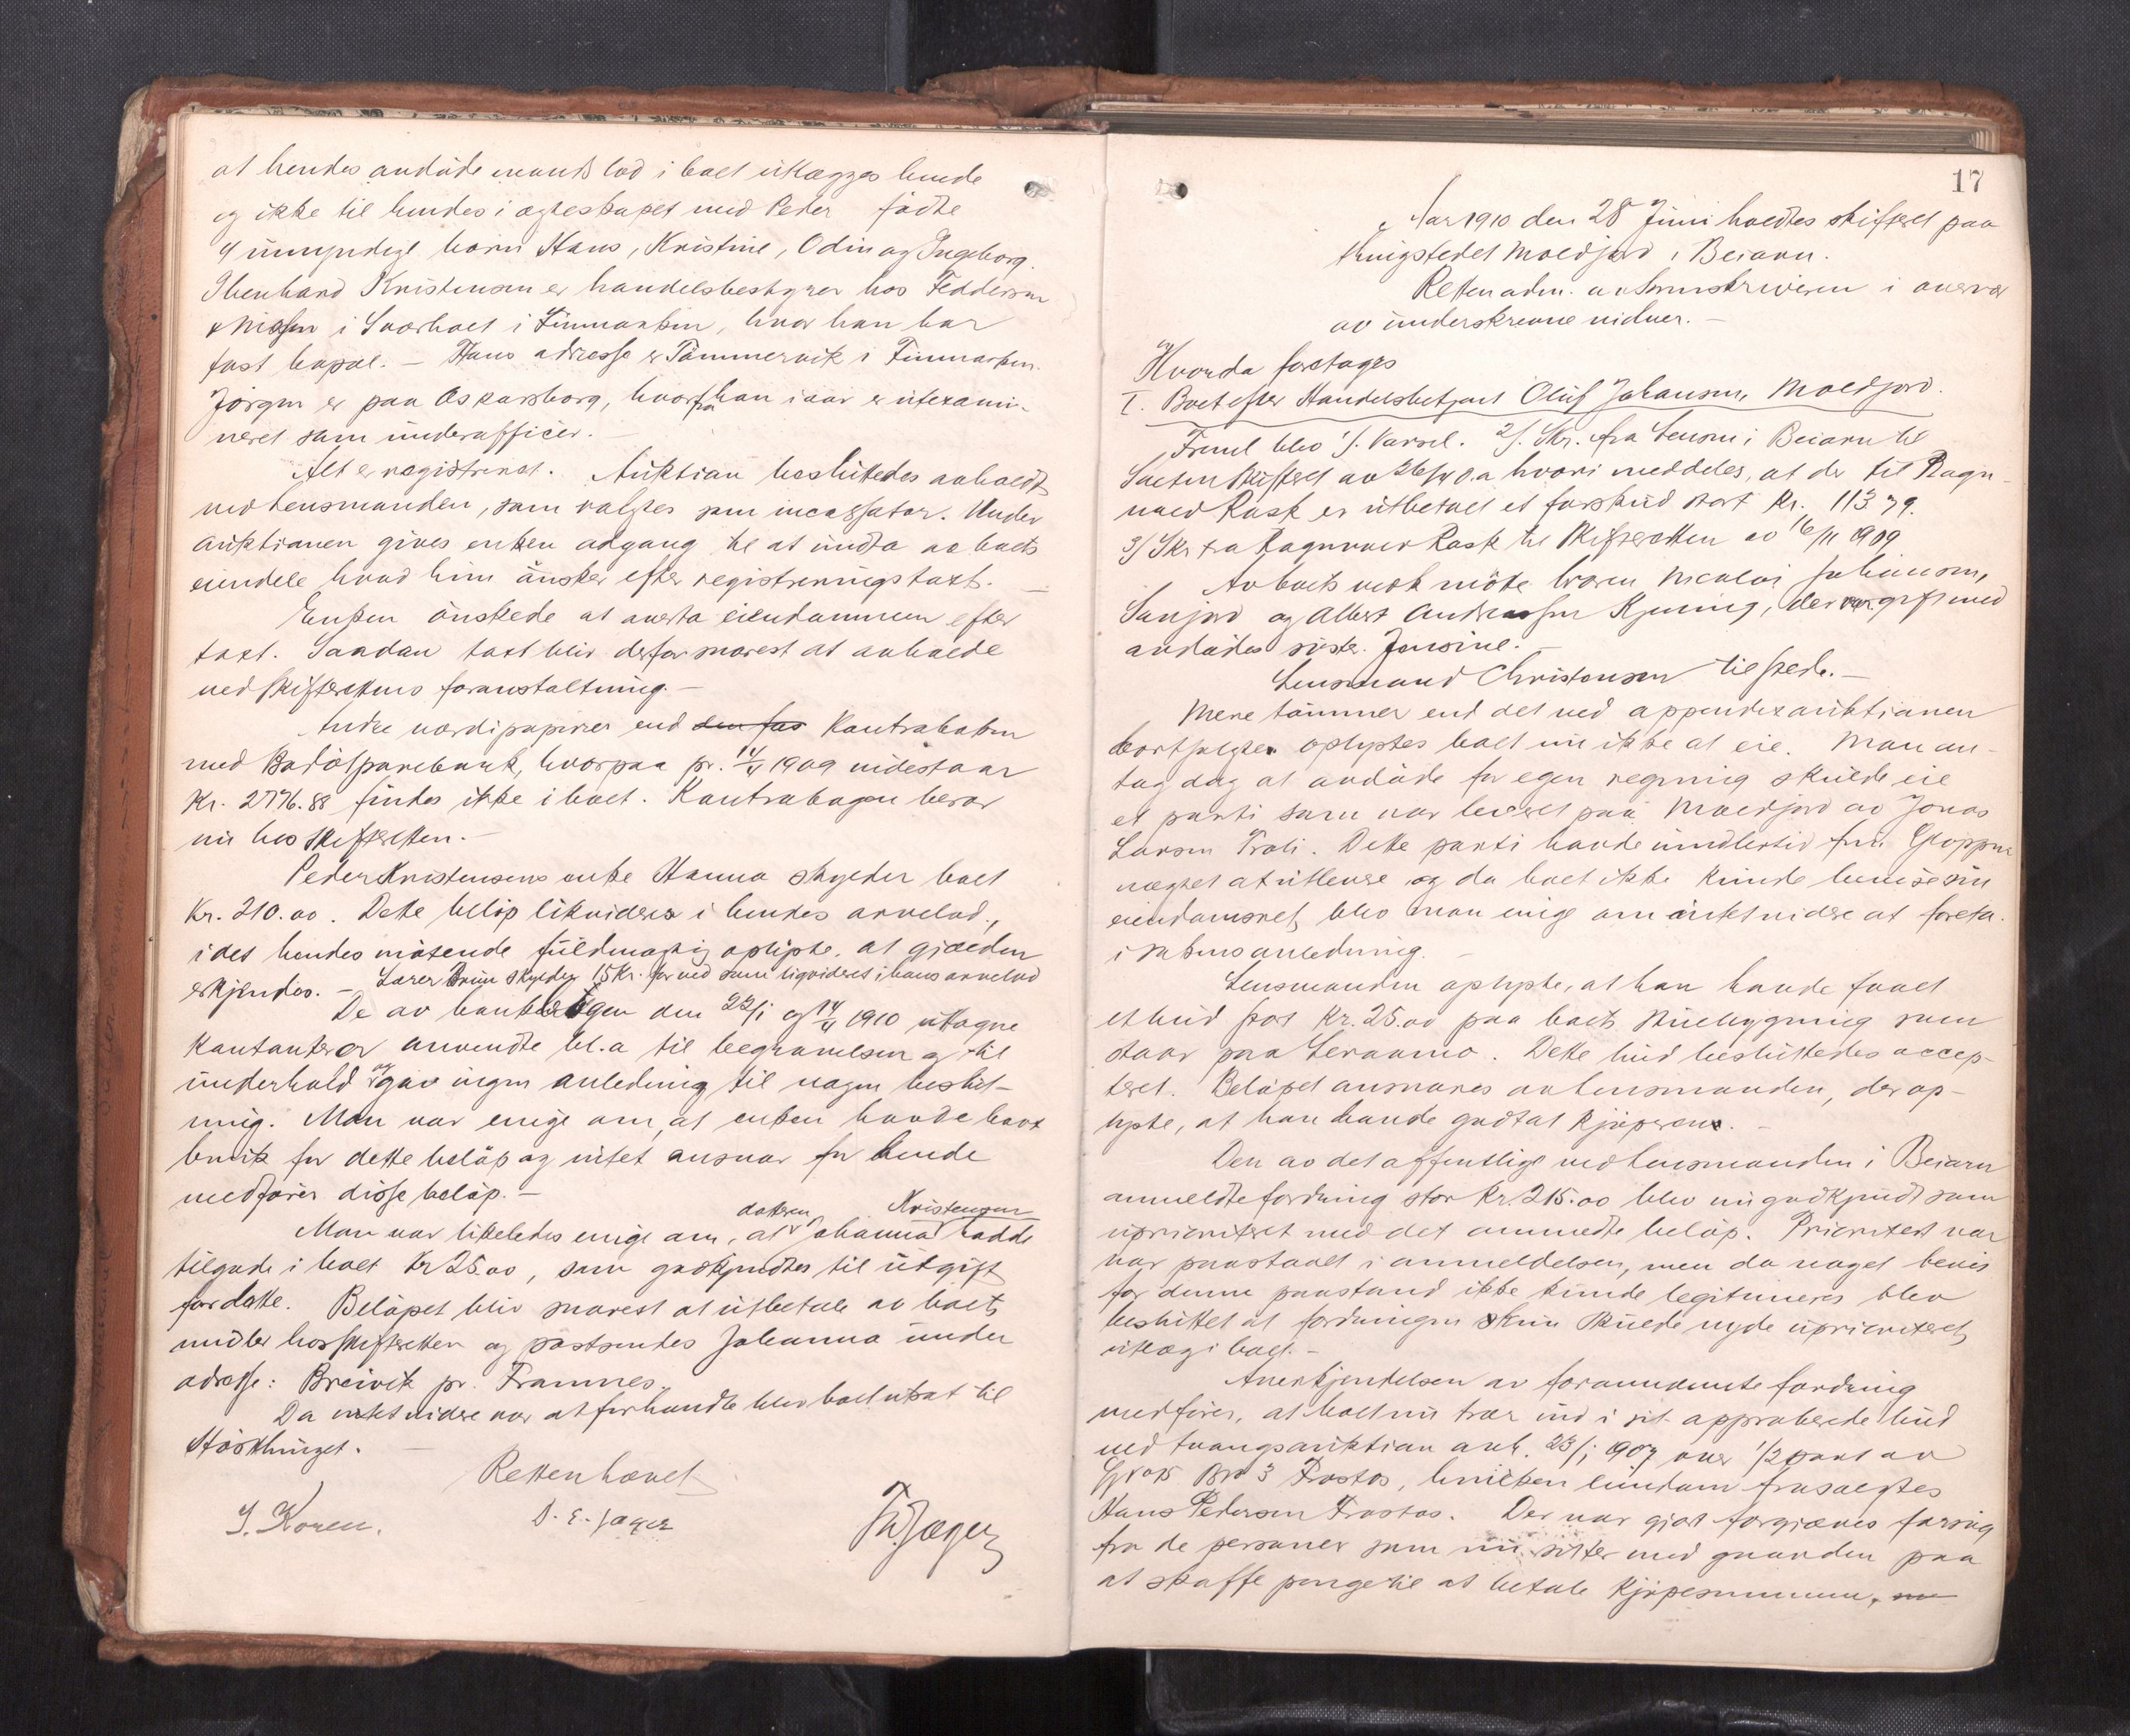 at hendes avdøde mands lod i boet utlægges hende
og ikke til hendes i ægteskapet med Peder fødte
4 umyndige børn Hans, Kristine, Odin og Ingeborg.
Kristensen er handelsbestyrer hos Feddersen
& Nissen i Sværholt i Finmarken, hvor han har
fast bopæl. – Hans adresse er Tømmervik i Finmarken.
Jørgen er paa Oskarsborg, hvorfra han iaar er utexami-
neret som underofficer. –
Alt er registreret. Auktion besluttedes avholdt
ved lensmanden, som valgtes som incassator. Under
auktionen gives enken adgang til at undta av boets
eiendele hvad hun ønsker efter registreringstaxt. –
Enken ønskede at overta eiendommen efter
taxt. Saadan taxt blir derfor snarest at avholde
ved skifterettens foranstaltning. –
Andre værdipapirer end den fas Kontraboken
med Bodø Sparebank, hvorpaa pr. 14/4 1909 indestaar
Kr. 2776.88 findes ikke i boet. Kontrabogen beror
nu hos skifteretten. –
Peder Kristensens enke Hanna skylder boet
Kr. 210.00. Dette beløp likvideres i hendes arvelod,
idet hendes møtende fuldmægtig oplyste, at gjælden
erkjendes. – Lærer Brun skylder 15 Kr. for ved som liqvideres i hans arvelod
De av bankbogen den 22/1 og 14/4 1910 uttagne
kontanter er anvendte bl.a til begravelsen og til
underhold og gav ingen anledning til nogen beslut-
ning. Man var enige om, at enken havde hat
bruk for dette beløp og intet ansvar for hende
medfører disse beløp. –
Man var likeledes enige om, at datteren Johanna Kristensen hadde
tilgode i boet Kr 25.00, som godkjendtes til utgift
for dette. Beløpet blir snarest at utbetale av boets
midler hos skifteretten og postsendes Johanna under
adresse: Breivik pr. Framnes.
Da intet videre var at forhandle blev boet utsat til
Høstthinget. –
Retten hævet
J. Koren. D. E. Jæger Th. Jæger
17
Aar 1910 den 28 Juni holdtes skifteret paa
thingstedet Moldjord i Beiarn.
Retten adm. av Sorenskriveren i overvær
av underskrevne vidner. –
Hvorda foretages
I. Boet efter Handelsbetjent Oluf Johansen, Moldjord.
Freml blev 1/. Varsel. 2/. Skr. fra Lensm i Beiarn til
Salten Skifteret av hvori meddeles, at der til Ragn-
vald Rask er utbetalt et forskud stort Kr. 113 79.
3/ Skr fra Ragnvald Rask til Skifteretten av 16/11 1909
Av boets vedk møtte broren Nicolai Johansen,
Sanjord og Albert Andreassen Kjerring, der var gift med
avdødes søster Jensine. –
Lensmand Christensen tilstede. –
Mere tømmer end det ved appendixauktionen
bortsolgte oplystes boet nu ikke at eie. Man an-
tog dog at avdøde for egen regning skulde eie
et parti som var levert paa Moldjord av Jonas
Larsen Troli. Dette parti havde imidlertid fru Gloppen
nægtet at utlevere og da boet ikke kunde bevise sin
eiendomsret, blev man enige om intet videre at foreta
i sakens anledning. –
Lensmanden oplyste, at han havde faaet
et bud stort Kr. 25.00 paa boets stuebygning som
staar paa Leiraamo. Dette bud besluttedes accep-
teret. Beløpet ansvares av lensmanden, der op-
lyste, at han havde godtat kjøperen. –
Den av det offentlige ved lensmanden i Beiarn
anmeldte fordring stor Kr. 215.00 blev nu godkjendt som
uprioriteret med det anmeldte beløp. Prioritert var
var paastaaet i anmeldelsen, men da noget bevis
for denne paastand ikke kunde legitimeres blev
besluttet at fordringen kun skulde nyde uprioriteret
utlæg i boet. –
Anerkjendelsen av forannævnte fordring
medfører, at boet nu trær ind i sit approberede bud
ved tvangsauktion avh. 23/1 1907 over 1/2 part av
Gr No 15 Br 3 Trostos, hvilken eiendom frasolgtes
Hans Pedersen Trostos. Der var gjort forgjæves forsøg
fra de personer som nu sitter med gaarden paa
at skaffe penge til at betale kjøpesummen,